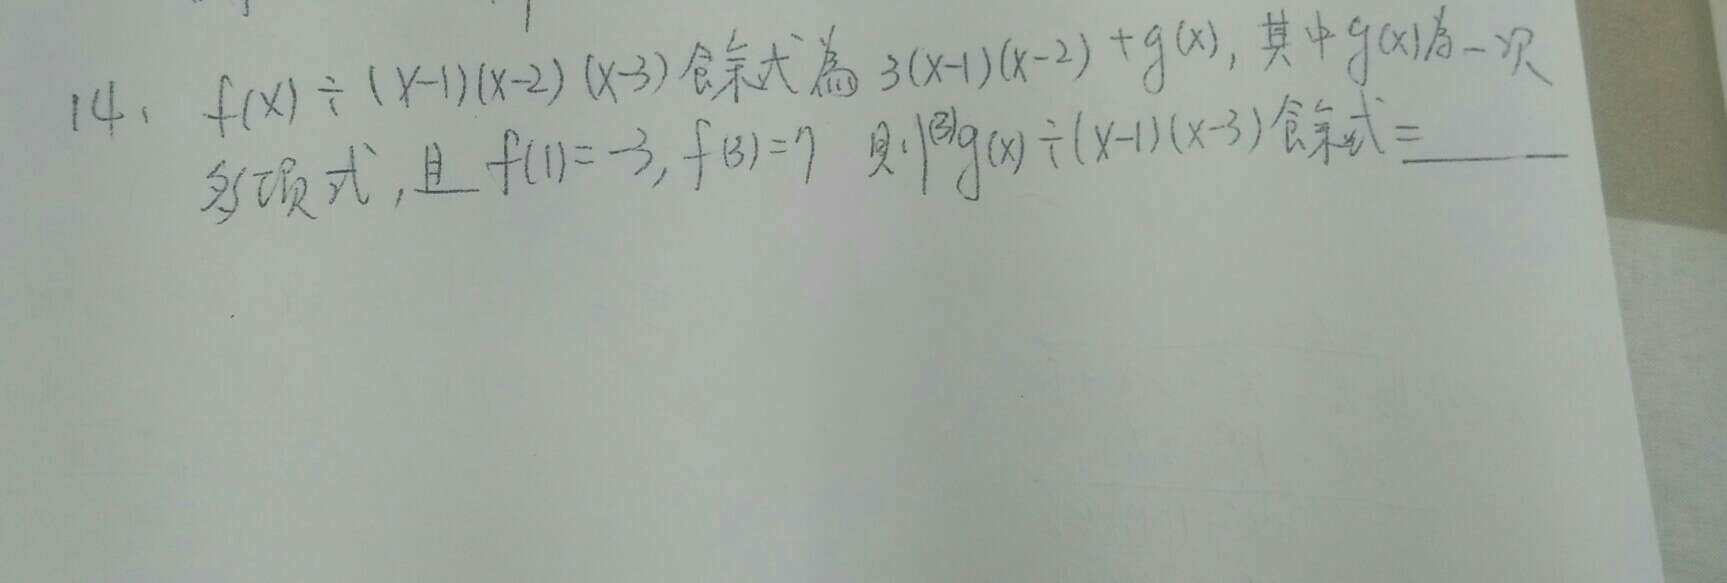 14. f(x)÷(x-1)(x-2)(x-3)餘式為 3(x-1)(x-2)+g(x), 其中g(x)为一次
多项式,且 f(1)=-3, f(3)=7 则(3)g(x)÷(x-1)(x-3)餘式=______